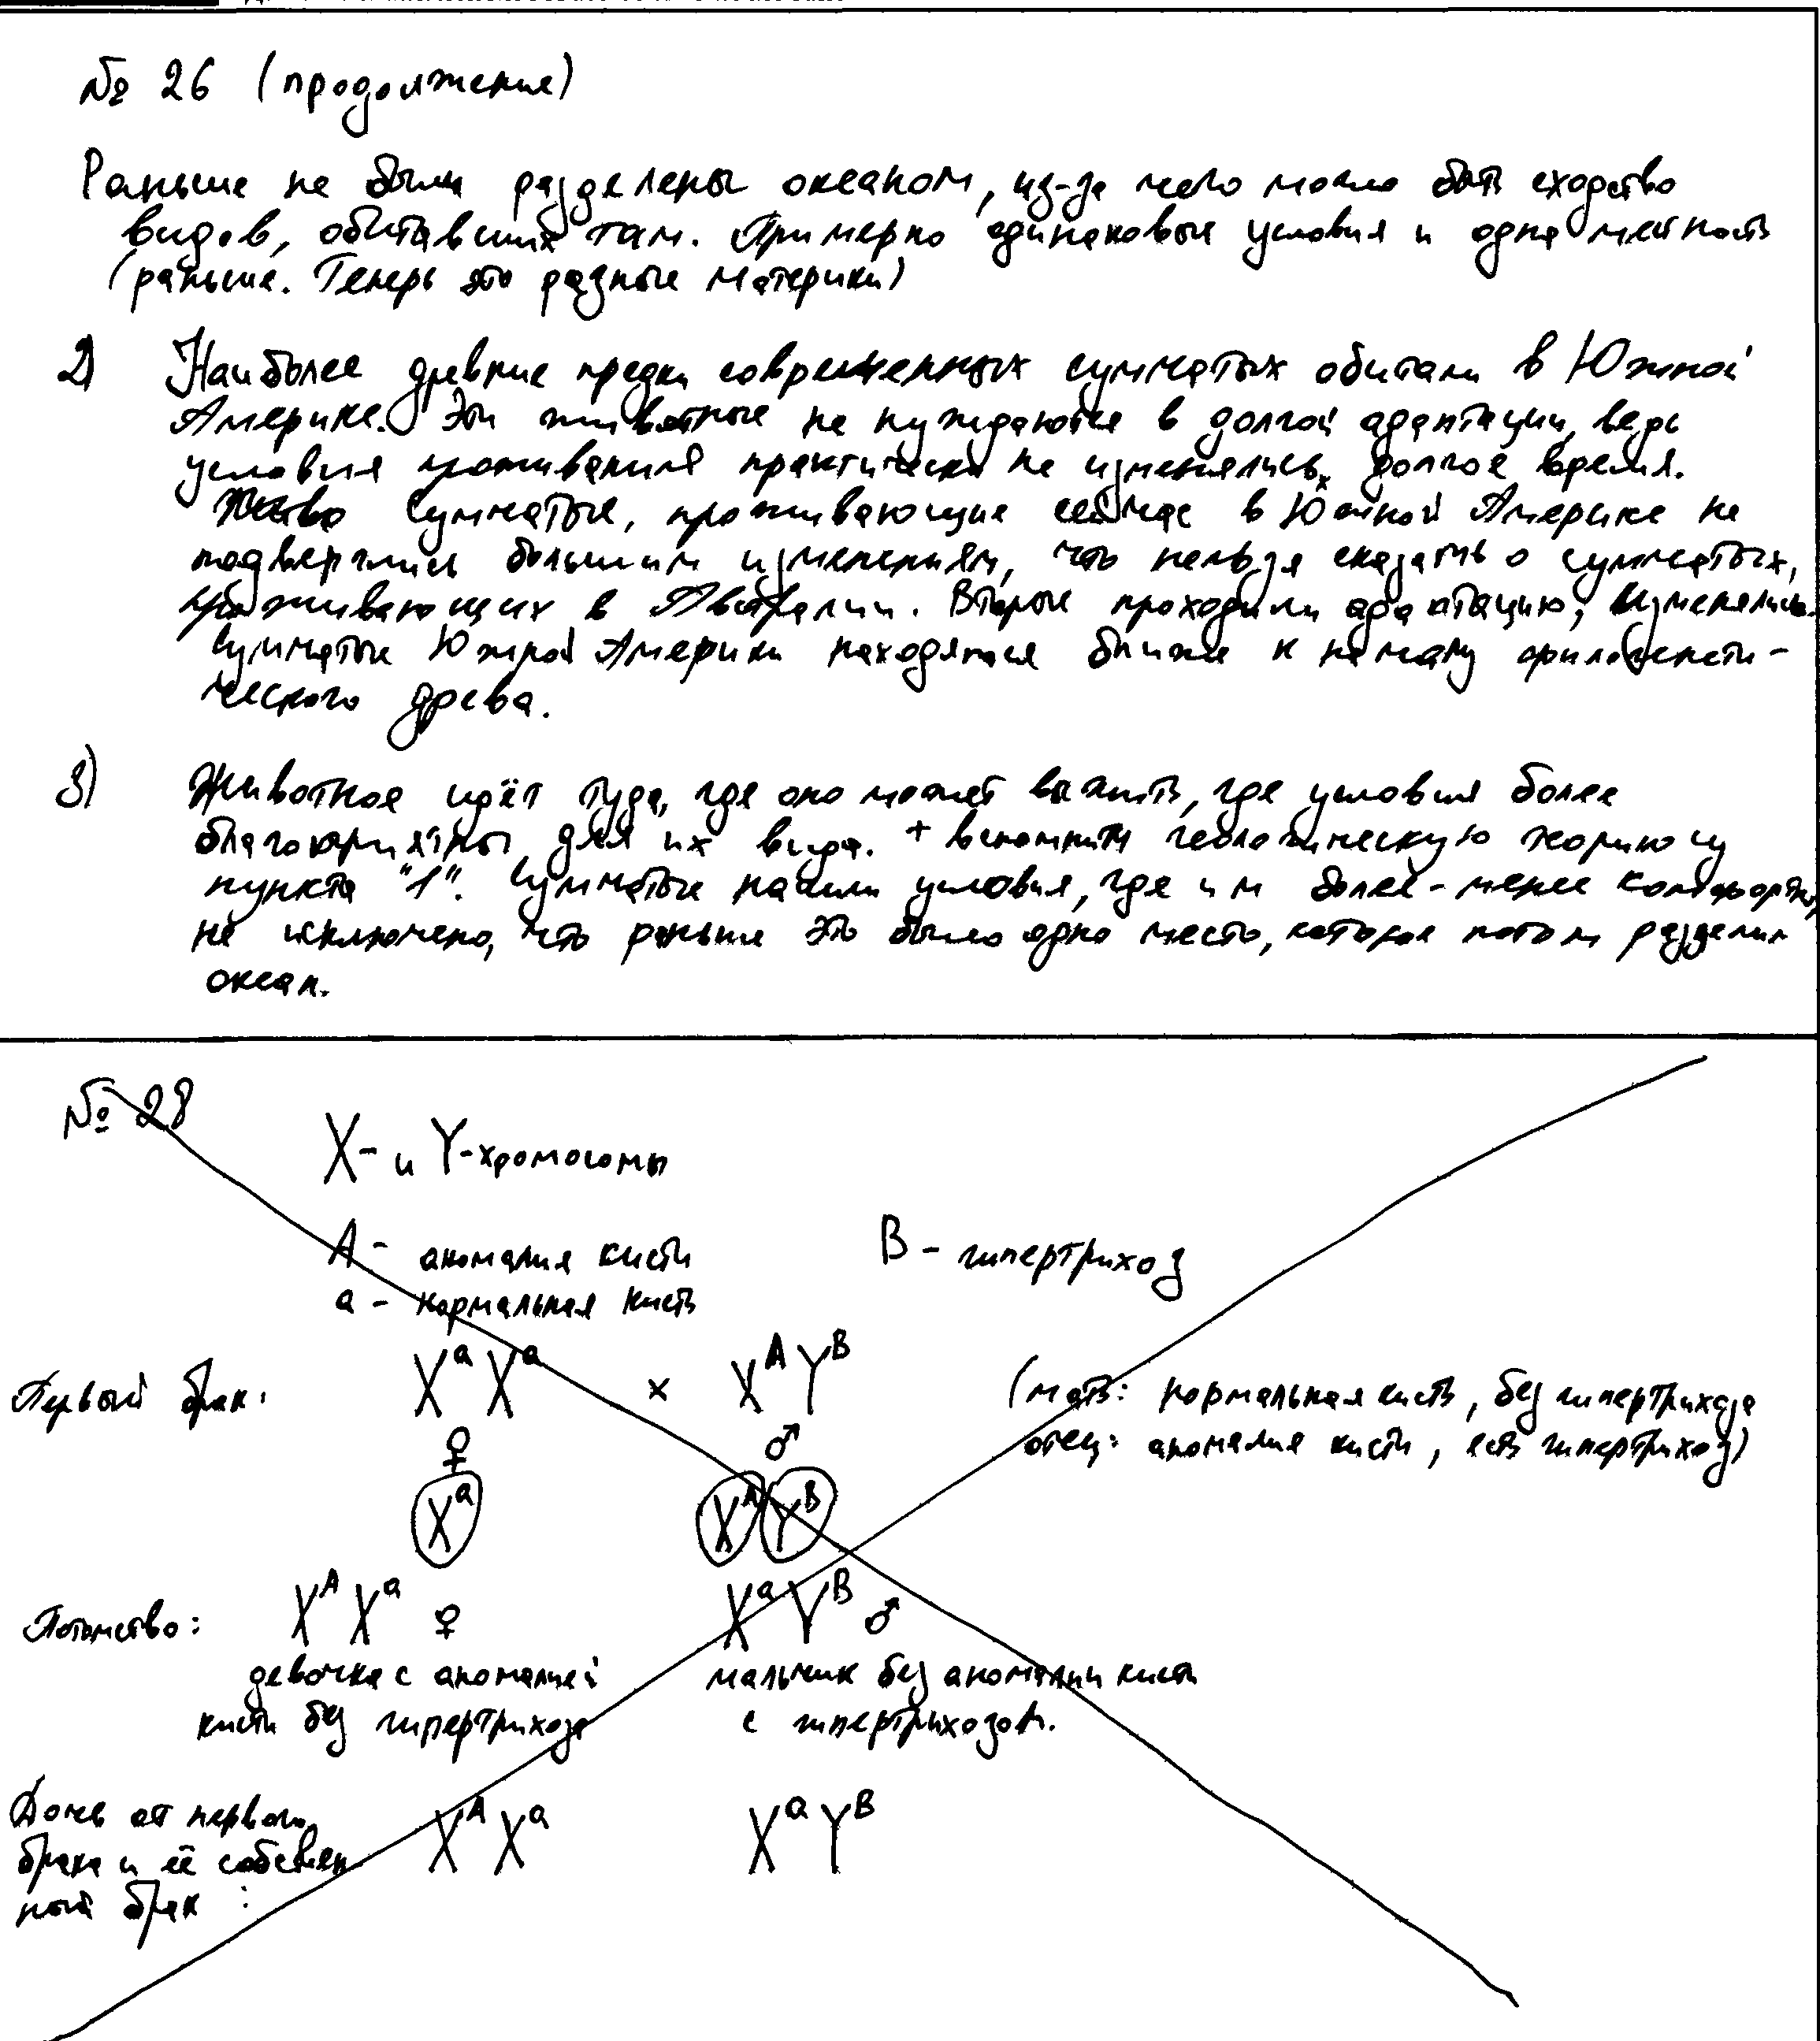 № 26 (продолжение)
Раньше не были разделены океаном, из-за чего могло быть сходство
видов, обитавших там. Примерно одинаковые условия и одна местность
(раньше. Теперь это разные материки)
2) Наиболее древние предки современных сумчатых обитали в Южной
Америке. Эти животные не нуждаются в долгой адаптации, ведь
условия проживания практически не изменялись долгое время.
Сумчатые, проживающие сейчас в Южной Америке не
подверглись большим изменениям, что нельзя сказать о сумчатых,
проживающих в Австралии. Вторые проходили адаптацию, изменялись.
Сумчатые Южной Америки находятся ближе к началу филогенети-
ческого древа.
3) Животное идёт туда, где оно может выжить, где условия более
благоприятны для их вида. + вспомнить геологическую теорию из
пункта "1". Сумчатые нашли условия, где им более-менее комфортно,
не исключено, что раньше это было одно место, которое потом разделил
океан.
№ 28
X- и Y-хромосомы
A - аномалия кисти B - гипертрихоз
a - нормальная кисть
Первый брак: XᵃXᵃ × XᴬYᴮ (мать: нормальная кисть, без гипертрихоза
♀ ♂ отец: аномалия кисти, есть гипертрихоз)
Xᵃ Xᴬ Yᴮ
Потомство: XᴬXᵃ ♀ XᵃYᴮ ♂
девочка с аномалией мальчик без аномалии кисти
кисти без гипертрихоза с гипертрихозом.
Дочь от первого XᴬXᵃ XᵃYᴮ
брака и её собствен
ный брак :